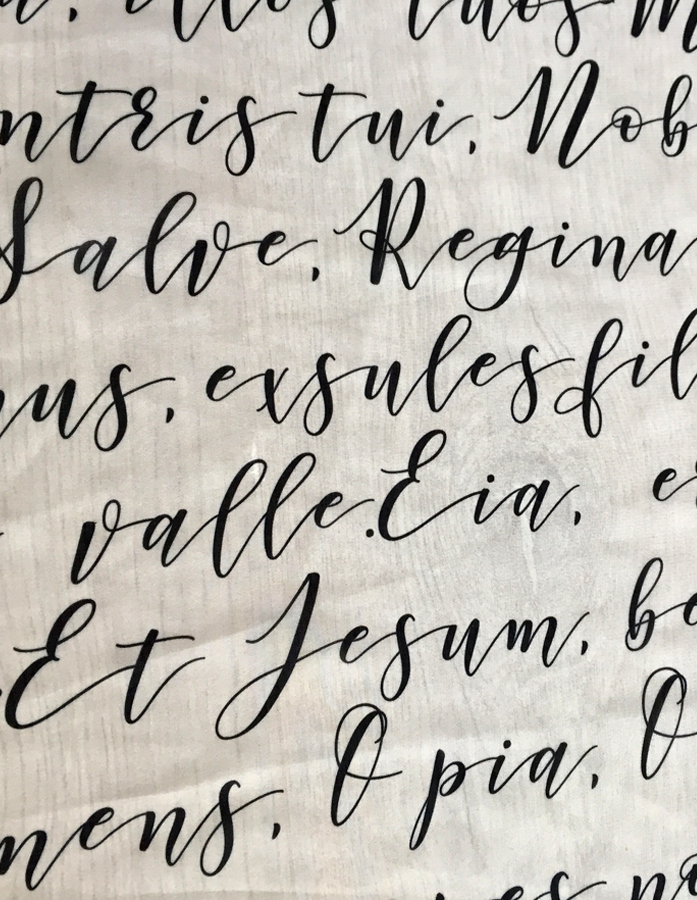 illos tuos m
ntris tui, Nob
Salve, Regina
us, exsules fil
valle. Eia, e
Et Jesum, be
mens, O pia, O